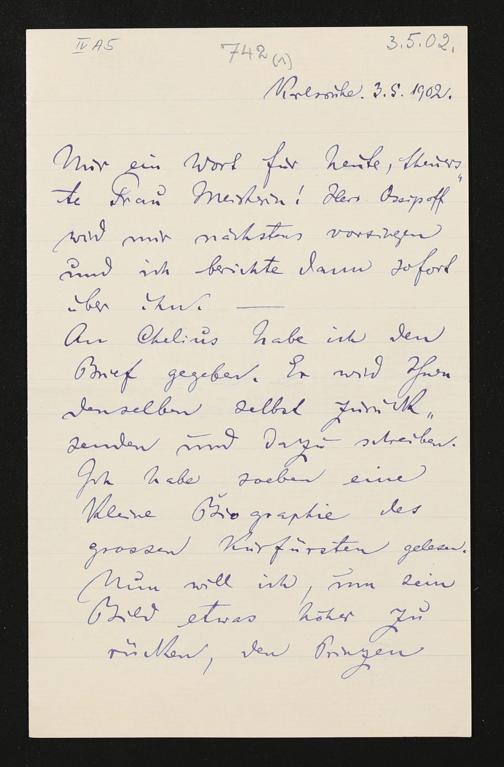 IV A5
742 (1)
3.5.02.
Karlsruhe. 3.5.1902.
Nur ein Wort für heute, theuers„
te Frau Meisterin! Herr Ossipoff
wird mir nächstens vorsingen
und ich berichte dann sofort
über ihn. —
An Chelius habe ich den
Brief gegeben. Er wird Ihnen
denselben selbst zurück„
senden und dazu schreiben.
Ich habe soeben eine
kleine Biographie des
grossen Kurfürsten gelesen.
Nun will ich, um sein
Bild etwas höher zu
rücken, den Prinzen